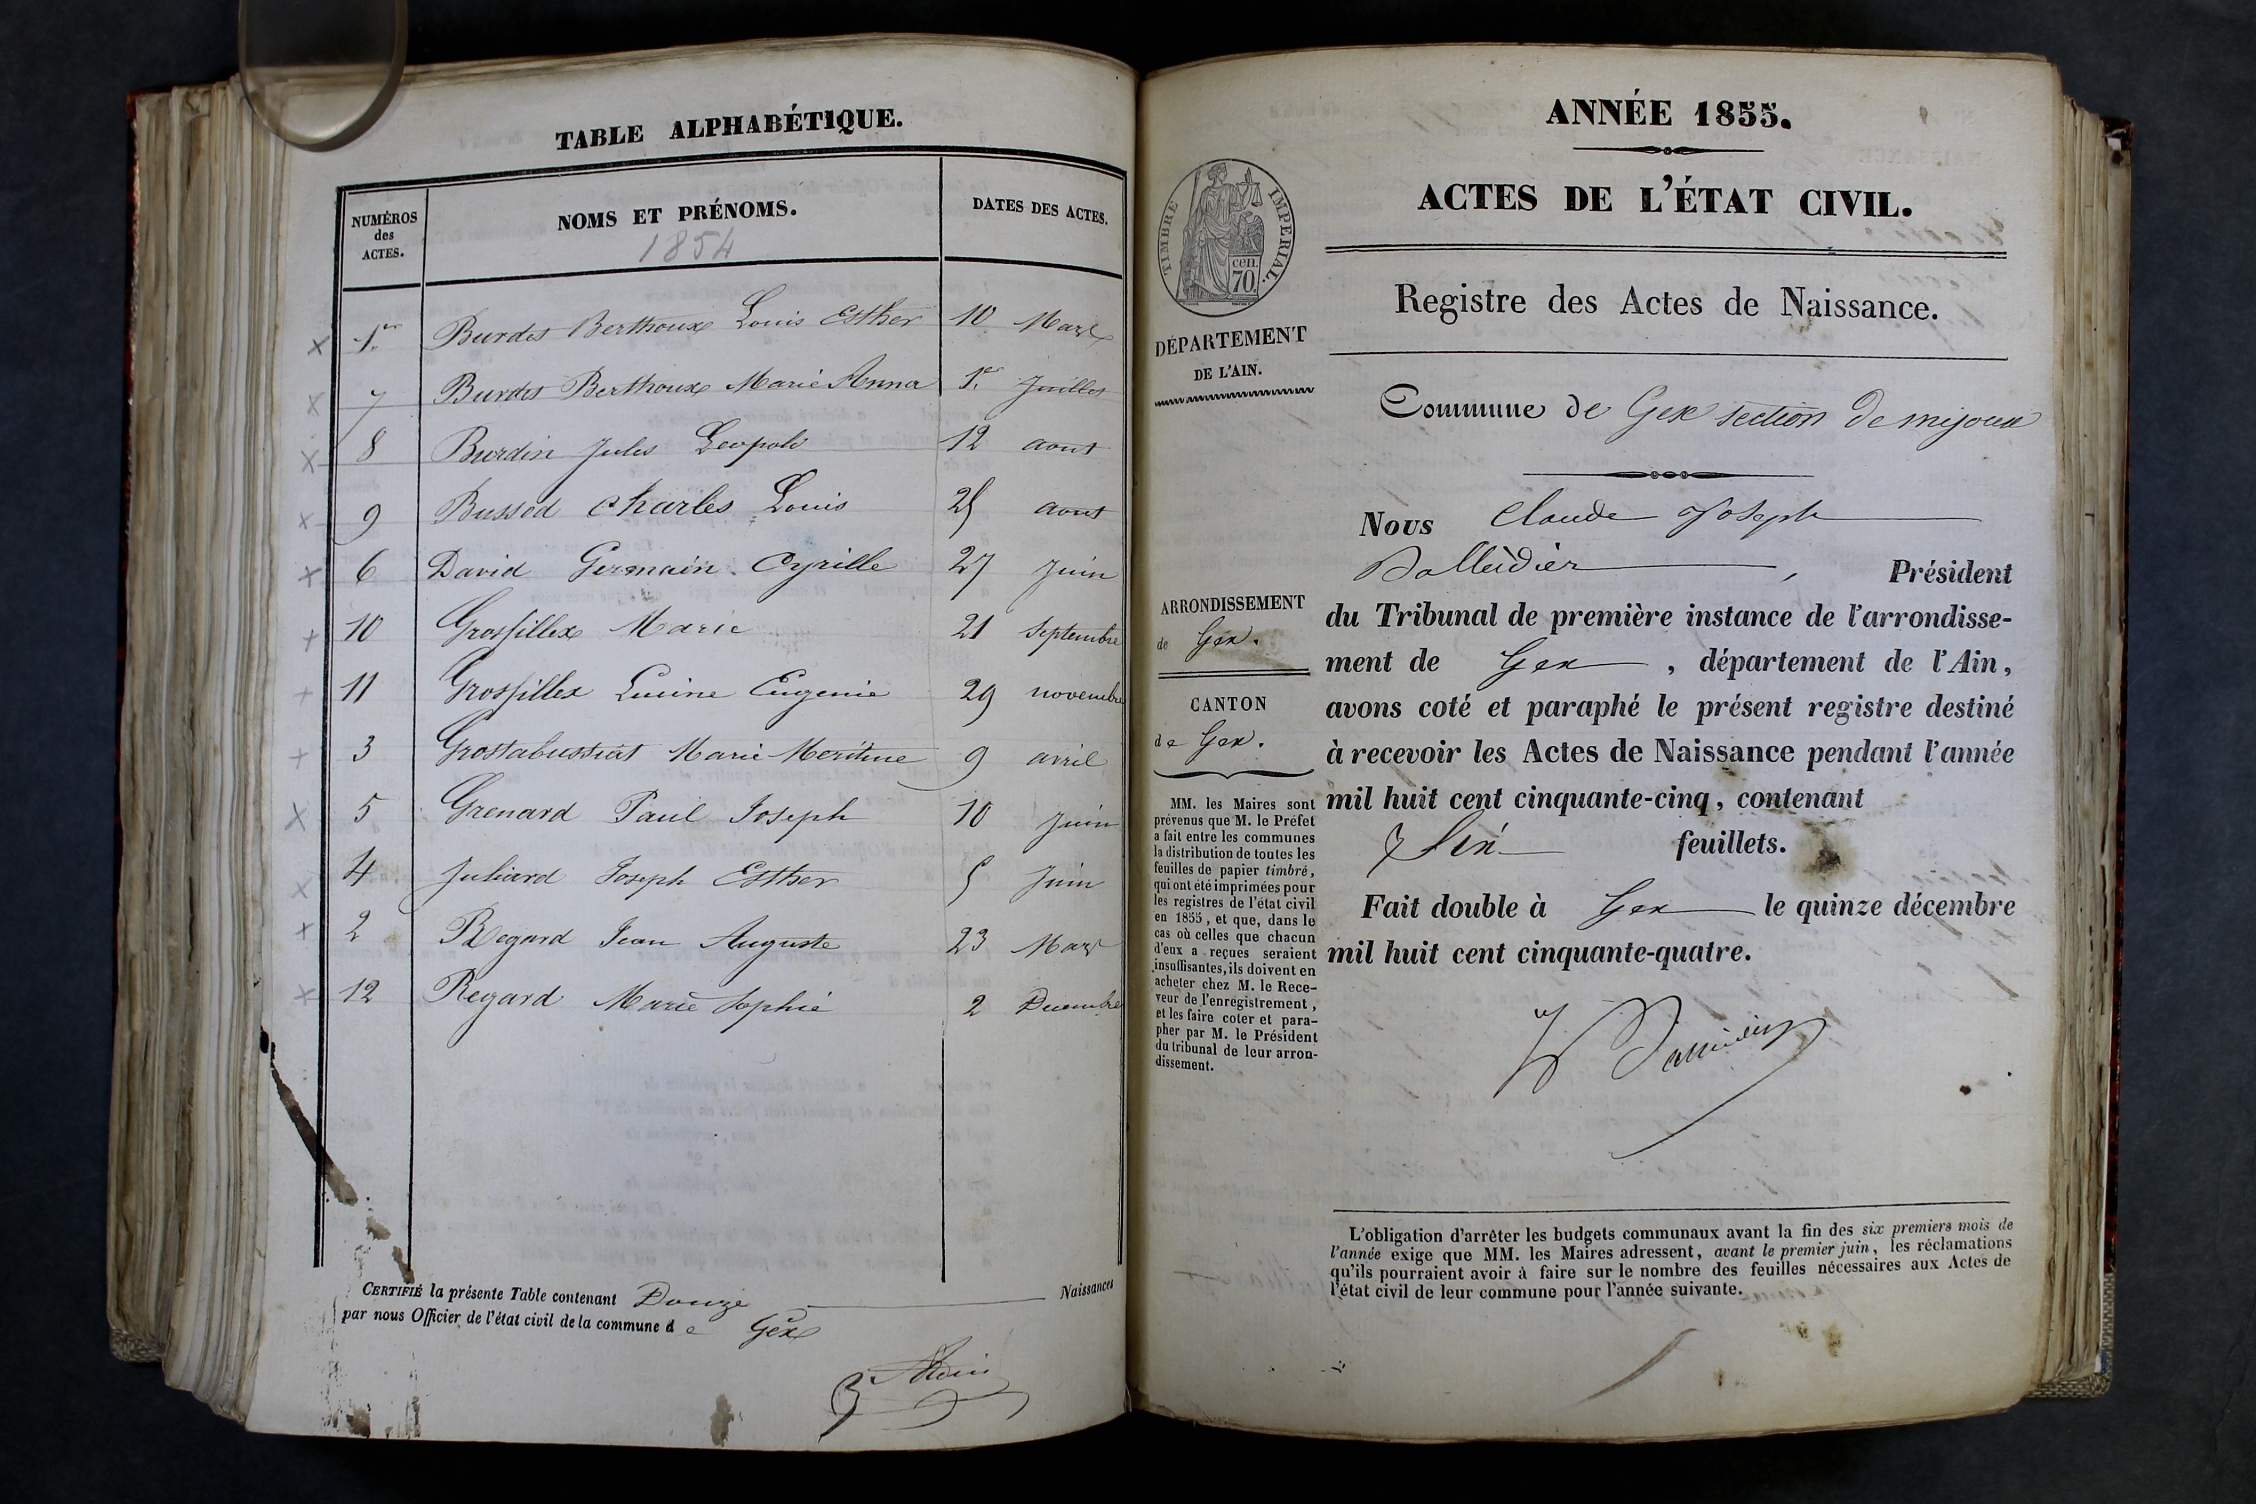 TABLE ALPHABÉTIQUE.
NUMÉROS des ACTES.
NOMS ET PRÉNOMS.
DATES DES ACTES.
1854
1er Burdet Berthoux Louis Esther 10 Mars
7 Burdet Berthoux Marie Anna 1er Juillet
8 Burdin Jules Leopold 12 aout
9 Bussod Charles Louis 25 aout
6 David Germain Cyrille 27 Juin
10 Grosfillex Marie 21 Septembre
11 Grosfillex Lucine Eugenie 29 novembre
3 Grostabussiat Marie 9 avril
5 Grenard Paul Joseph 10 Juin
4 Juliard Joseph Esther 5 Juin
2 Regard Jean Auguste 23 Mars
12 Regard Marie Sophie 2 Decembre
CERTIFIÉ la présente Table contenant Douze Naissances
par nous Officier de l'état civil de la commune de Gex
ANNÉE 1855.
ACTES DE L'ÉTAT CIVIL.
TIMBRE IMPERIAL.
70. cen.
Registre des Actes de Naissance.
DÉPARTEMENT
DE L'AIN.
Commune de Gex section de mijoux
ARRONDISSEMENT
de Gex.
CANTON
de Gex.
MM. les Maires sont
prévenus que M. le Préfet
a fait entre les communes
la distribution de toutes les
feuilles de papier timbré,
qui ont été imprimées pour
les registres de l'état civil
en 1855, et que, dans le
cas où celles que chacun
d'eux a reçues seraient
insuffisantes, ils doivent en
acheter chez M. le Rece-
veur de l'enregistrement,
et les faire coter et para-
pher par M. le Président
du tribunal de leur arron-
dissement.
Nous Claude Joseph
Président
du Tribunal de première instance de l'arrondisse-
ment de Gex, département de l'Ain,
avons coté et paraphé le présent registre destiné
à recevoir les Actes de Naissance pendant l'année
mil huit cent cinquante-cinq, contenant
feuillets.
Fait double à Gex le quinze décembre
mil huit cent cinquante-quatre.
L'obligation d'arrêter les budgets communaux avant la fin des six premiers mois de
l'année exige que MM. les Maires adressent, avant le premier juin, les réclamations
qu'ils pourraient avoir à faire sur le nombre des feuilles nécessaires aux Actes de
l'état civil de leur commune pour l'année suivante.